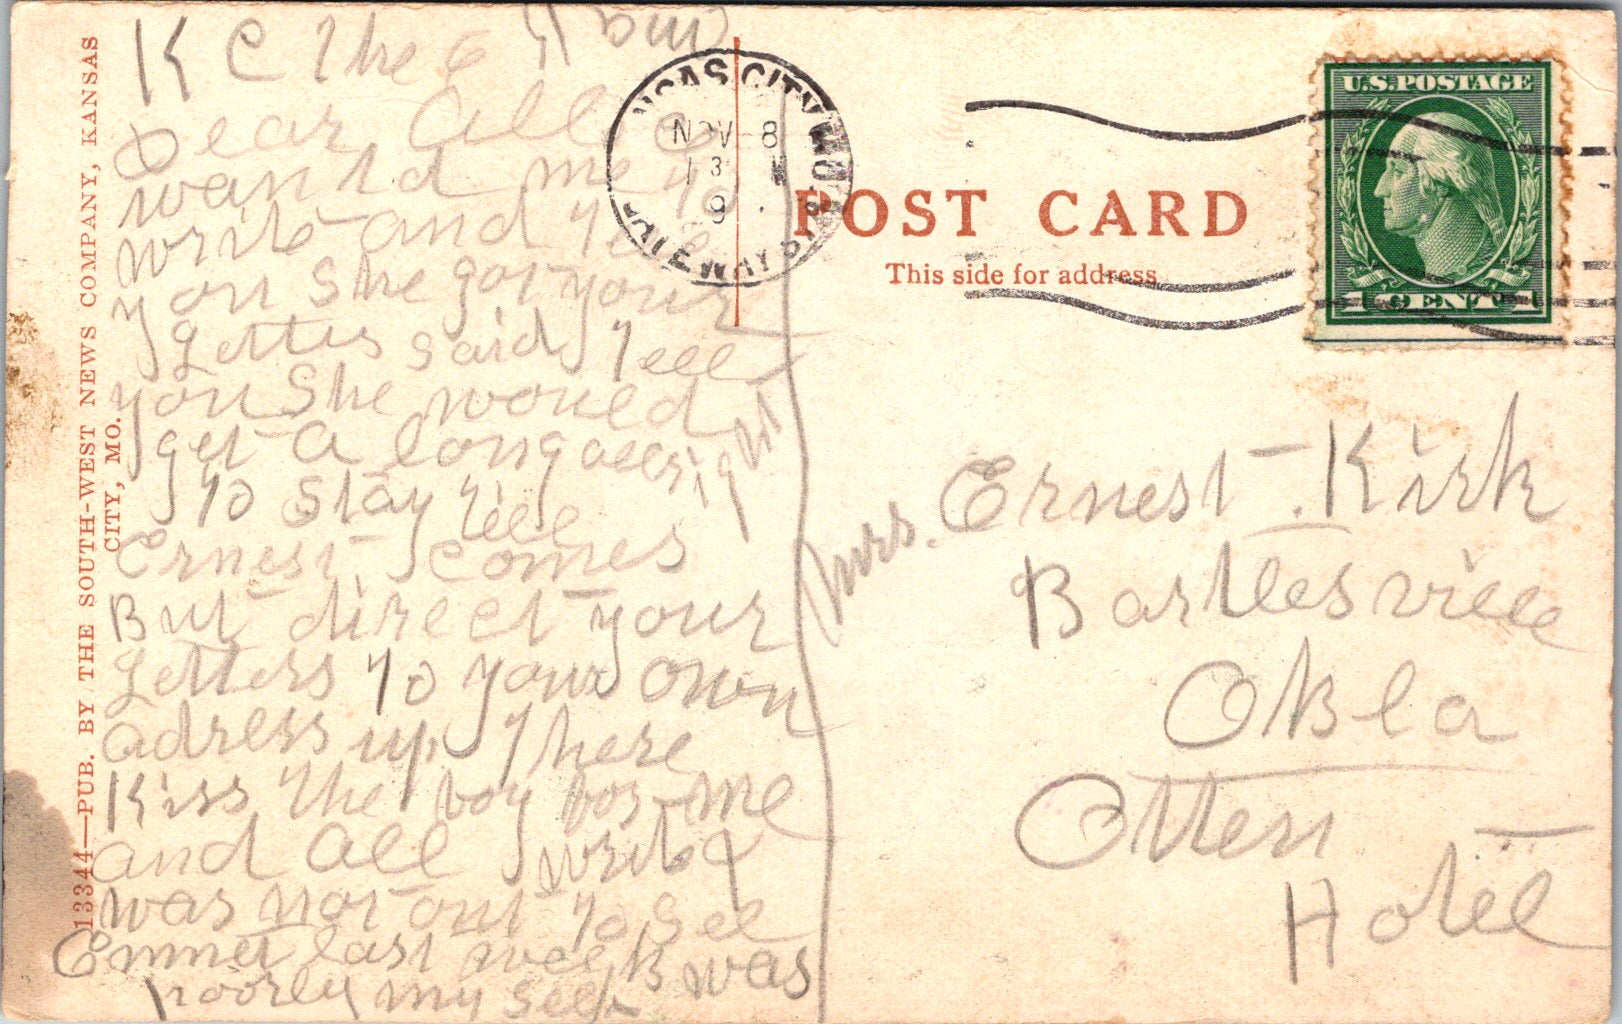 K C the 6
Ma
Dear all
wantd me to
write and tell
you She got your
Letters said tell
you She would
get a long allright
to stay till
Ernest comes
But direct your
Letters to your own
adress up there
Kiss the boy for me
and all write
was not out to See
Emmet last week was
poorly my Self
13344—PUB. BY THE SOUTH-WEST NEWS COMPANY, KANSAS
CITY, MO.
CITY, MO.
NOV 8
POST CARD
This side for address
U.S. POSTAGE
1 CENT 1
Mrs. Ernest Kirk
Bartlesville
Okla
Otten
Hotel